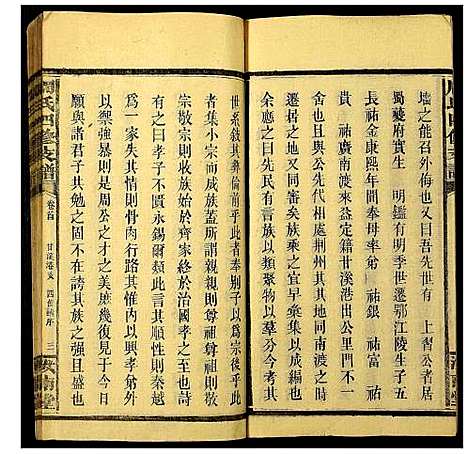 墻之能召外侮也又曰吾先世有 上習公者居
蜀夔府實生 明鑑有明季世遷鄂江陵生子五
長祐金康熙年間奉母率弟 祐銀 祐富 祐
貴 祐廣南渡來益定籍甘溪港出方境伯牙不一
遷居之地同審矣族乘之宜早纂集以成編也
余應之曰天與火同人君子以類族聚物以其羣分
世系敘其彝倫前乎此者奉別子以爲宗後乎此
者集小宗而成族蓋所謂親親則尊祖尊祖則敬
宗敬宗則收族始於齊家終於治國孝之時義大矣
有之曰孝子不匱永錫爾類此言其順性則秦越可
爲一家失其情則骨肉行路其惟內篤孝友而外可
以禦強暴則是周公之才之美庶幾復見于今矣
願與諸君子其勉之固不在誇其族之强且盛也
周氏四修支譜
卷首
甘溪港支 四修譜序
三
汝南堂